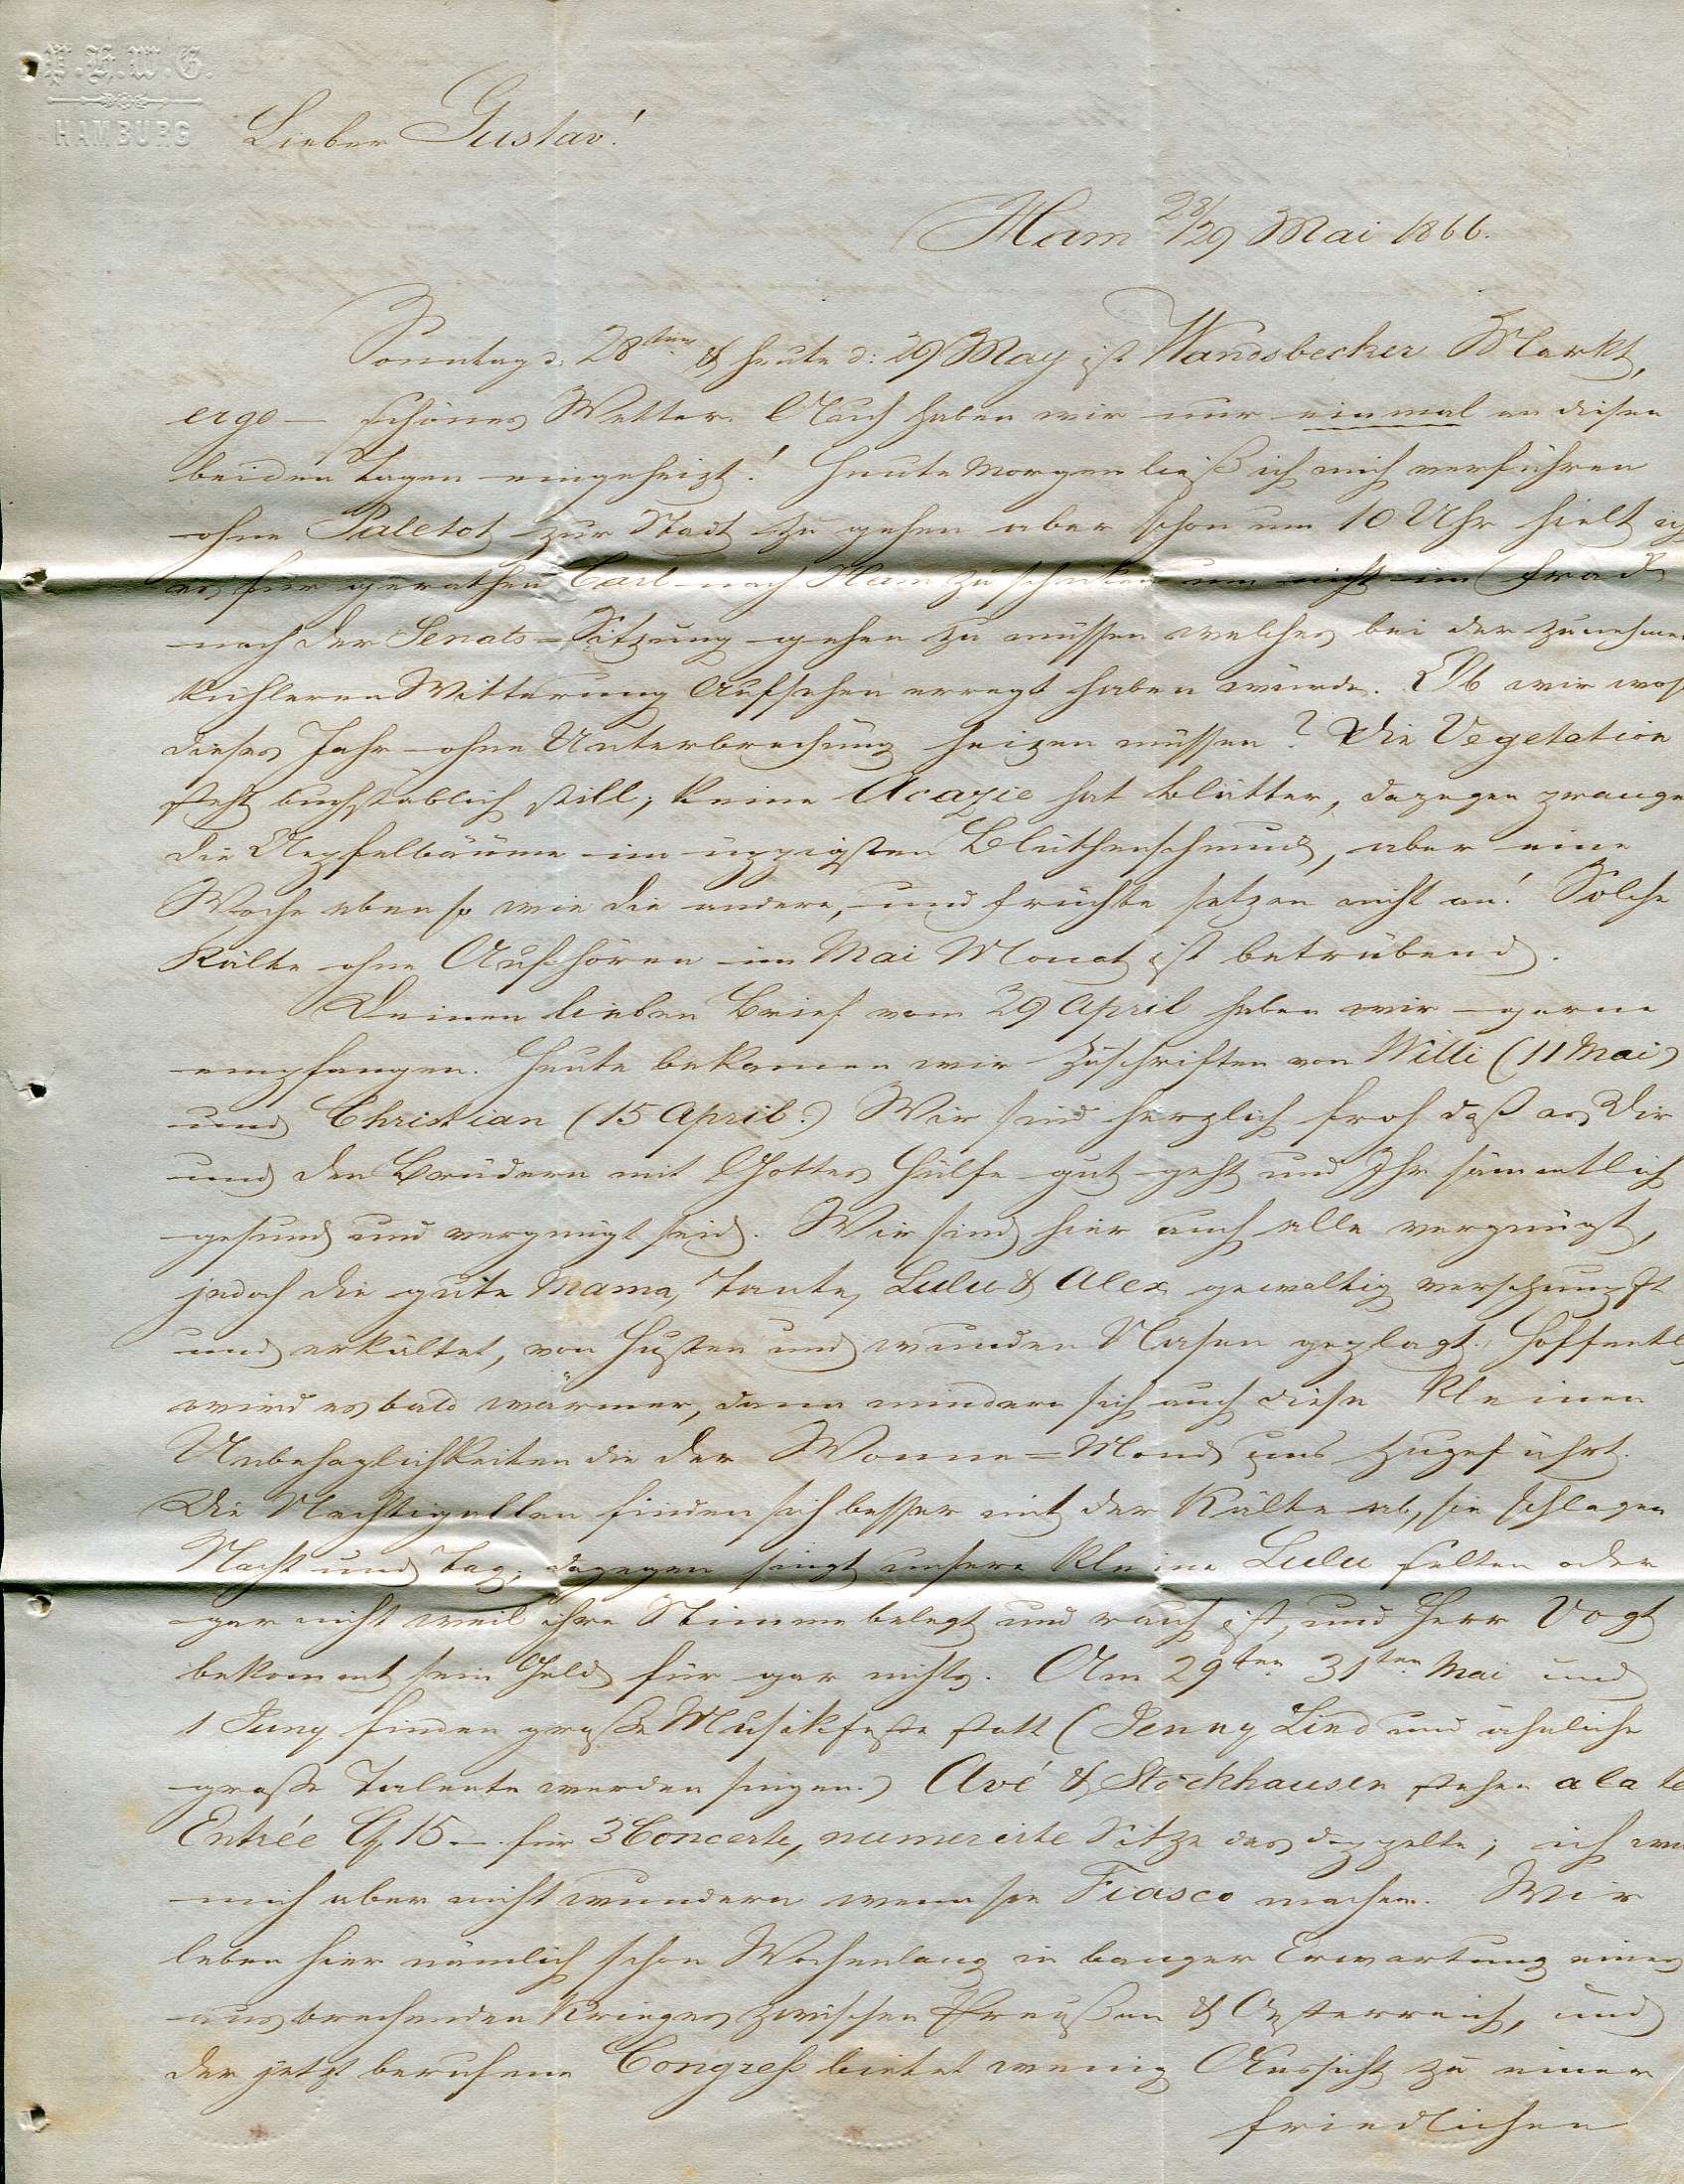 HAMBURG
Lieber Gustav!
Ham 28/29 Mai 1866.
Sonntag d. 28ten & heute d: 29 May ist Wandsbecker Markt,
ergo — schönes Wetter. Auch haben wir nur einmal an diesen
beiden Tagen eingeheizt! Heute Morgen ließ ich mich verführen
ohne Paletot zur Stadt zu gehen aber schon um 10 Uhr hielt ich
es für gerathen Carl nach Ham zu schicken um nicht im Frack
nach der Senats=Sitzung gehen zu müssen welches bei der zunehmen
kühleren Witterung Aufsehen erregt haben würde. Ob wir wohl
dieses Jahr ohne Unterbrechung heizen müssen? Die Vegetation
steht buchstäblich still; keine Acazie hat Blätter, dagegen prangen
die Aepfelbäume im üppigsten Blüthenschmuck, aber eine
Woche eben so wie die andere, und Früchte setzen nicht an! Solche
Kälte ohne Aufhören im Mai Monat ist betrübend.
Deinen lieben Brief vom 29 April haben wir gerne
empfangen. Heute bekamen wir Zuschriften von Willi (11 Mai)
und Christian (15 April.) Wir sind herzlich froh daß es Dir
und den Brüdern mit Gottes Hülfe gut geht und Ihr sämmtlich
gesund und vergnügt seid. Wir sind hier auch alle vergnügt,
jedoch die gute Mama, Tante, Lulu & Alex gewaltig verschnupft
und erkältet, von Husten und wunden Nasen geplagt. Hoffentl
wird es bald wärmer, dann mindern sich auch diese kleinen
Unbehaglichkeiten die der Wonne=Mond uns zugeführt.
Die Nachtigallen finden sich besser mit der Kälte ab, sie schlagen
Nacht und Tag; dagegen singt unsere kleine Lulu selten oder
gar nicht weil ihre Stimme belegt und rauh ist, und Herr Vogt
bekommt sein Geld für gar nichts. Am 29ten 31ten Mai und
1 Juny finden große Musikfeste statt (Jenny Lind und ähnliche
große Talente werden singen.) Avé & Stockhausen stehen a la te
Entrée 15 — für 3 Concerte, numerirte Sitze das doppelte; ich
mich aber nicht wundern wenn sie Fiasco machen. Wir
leben hier nämlich schon Wochenlang in banger Erwartung eines
ausbrechenden Krieges zwischen Preußen & Oesterreich, und
der jetzt berufene Congreß bietet wenig Aussicht zu einer
friedlichen